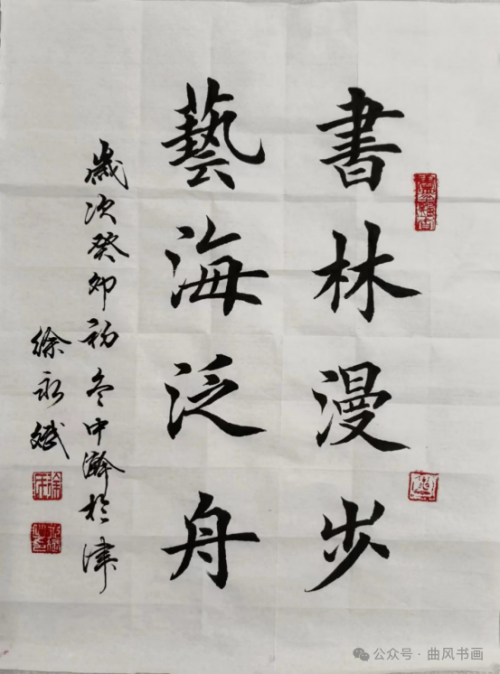 書林漫步
藝海泛舟
歲次癸卯初冬中瀚於津
徐永斌
公众号·曲风书画